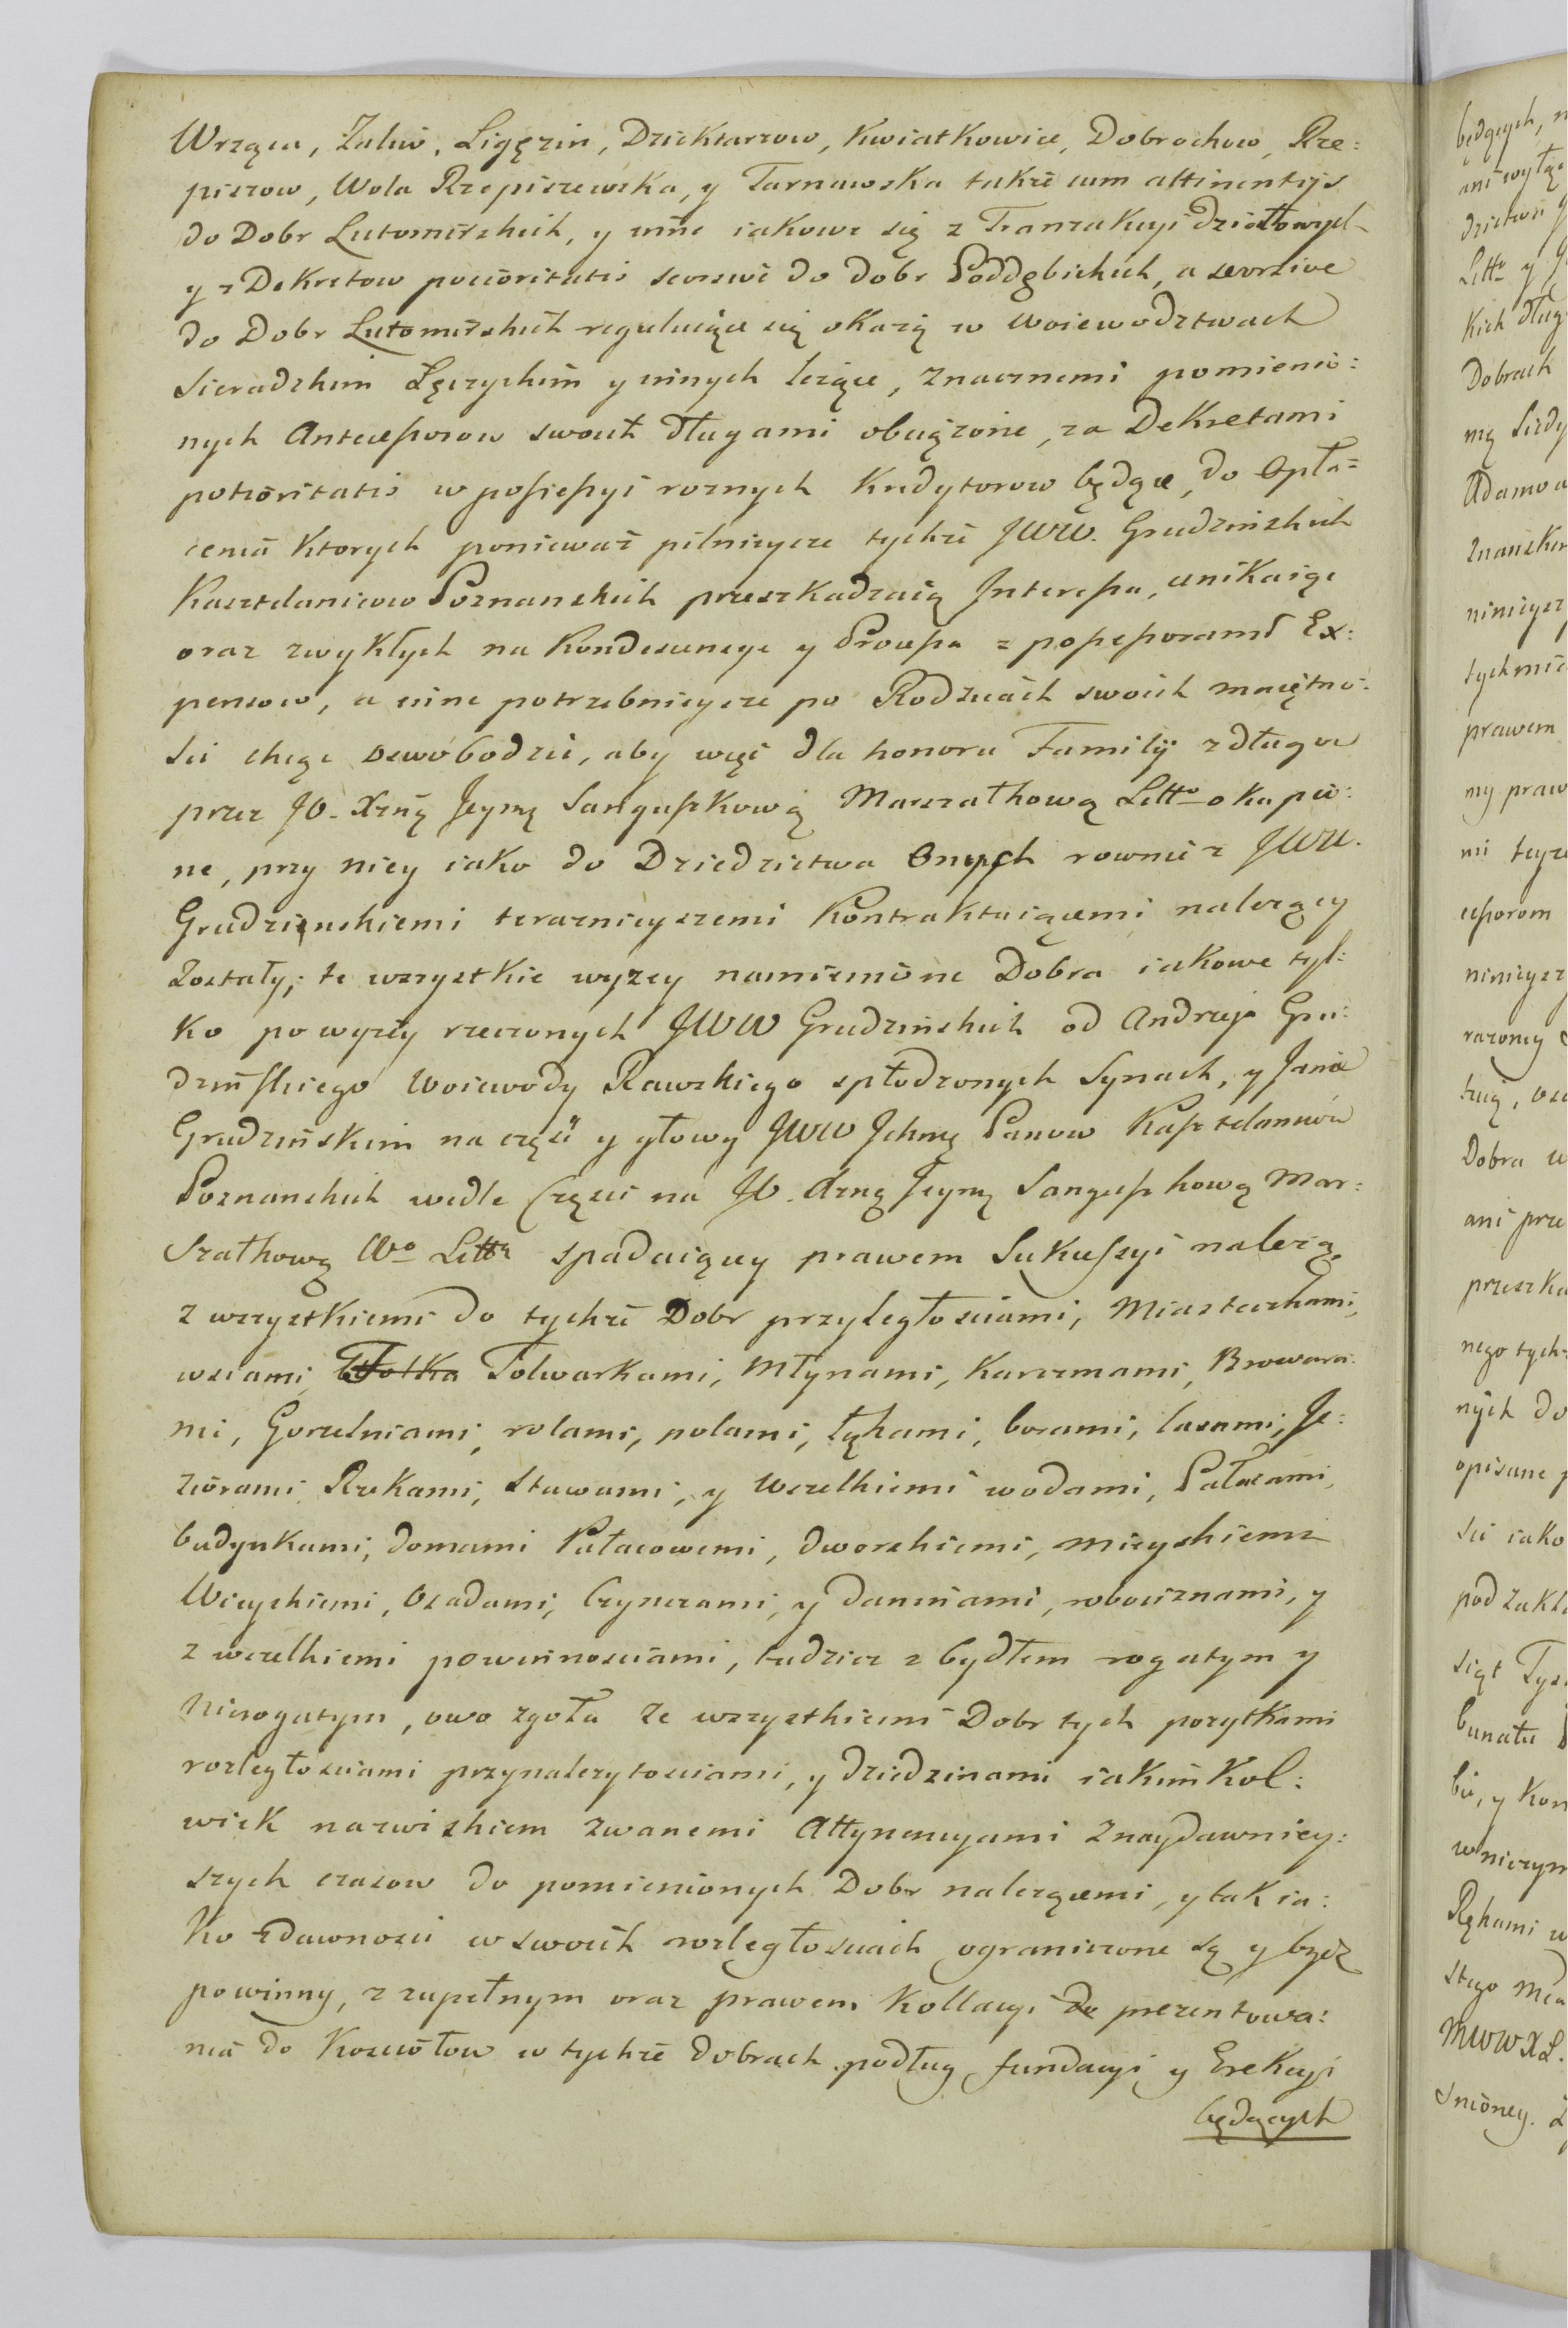 Wrzącu, Zalew, Ligęzin, Dzicktarzow, Kwiatkowice, Dobrochow, Rze:
piszow, Wola Rzepiszewska, y Tarnawska takze cum attinentijs
do Dobr Lutomirskich, y inne iakowe się z Tranzakcyi działowych
y z Dekretow pocioritatis seorsive do dobr Poddębickich, a seorsive
do Dobr Lutomirskich reguluiące się okazą w Woiewodztwach
Sieradzkim Łęczyckim y innych leżące, znacznemi pomienio:
nych Antecessorow swoich długami obciązone, za Dekretami
potioritatis w possessyi roznych Kredytorow będące, do Opła=
cenia Ktorych poniewaz pilnieysze tychze JWW. Grudzinskich
Kasztelanicow Poznanskich przeszkadzaią Interessa, unikaiąc
oraz zwykłych na Kondescensye y Processa z possessorami Ex:
pensow, a inne potrzebnieysze po Rodzicach swoich maiętno:
sci chcąc oswobodzic, aby więc dla honoru Familij z długow
przez JO. Xzną Jeymę Sanguszkową Marszałkową Litt. okupio:
ne, przy niey iako do Dziedzictwa Onych rownie z JWW.
Grudzinskiemi teraznieyszemi Kontraktuiącemi nalezącey
zostały; te wszystkie wyzey namienione Dobra iakowe tyl:
ko po wyzey rzeczonych JWW Grudzinskich od Andrzeja Gru:
dzińskiego Woiewody Rawskiego spłodzonych Synach, y Janie
Grudzińskim na częsć y głowy JWW Jchmę Panow Kasztelanicow
Poznanskich wedle Częsci na JO. Xzną Jeymę Sanguszkową Mar:
szałkową Wo Litta spadaiącey prawem Sukcessyi nalezą,
z wszystkiemi do tychze Dobr przyległosciami, Miasteczkami,
wsiami, Folwarkami, Młynami, Karczmami, Browara:
mi, Gorzelniami, rolami, polami, łąkami, borami, lasami, Je:
ziorami Rzekami, Stawami, y Wszelkiemi wodami, Pałacami,
budynkami, domami Pałacowemi, dworskiemi, mieyskiemi
Wieyskiemi, Osadami, Czynszami, y daninami, robociznami, y
z wszelkiemi powinnosciami, tudziez z bydłem rogatym y
nierogatym, owo zgoła ze wszystkiemi Dobr tych pozytkami
rozległosciami przynalezytosciami, y dziedzinami iakim Kol:
wiek nazwiskiem zwanemi Attynencyami z naydawniey:
szych czasow do pomienionych Dobr nalezącemi, y tak ia:
Ko z dawnosci w swoich rozległosciach ograniczone są y bydz
powinny, z zupełnym oraz prawem Kollacyi do prezentowa:
nia do Kosciołow w tychze dobrach podług fundacyi y Erekcyi
będących